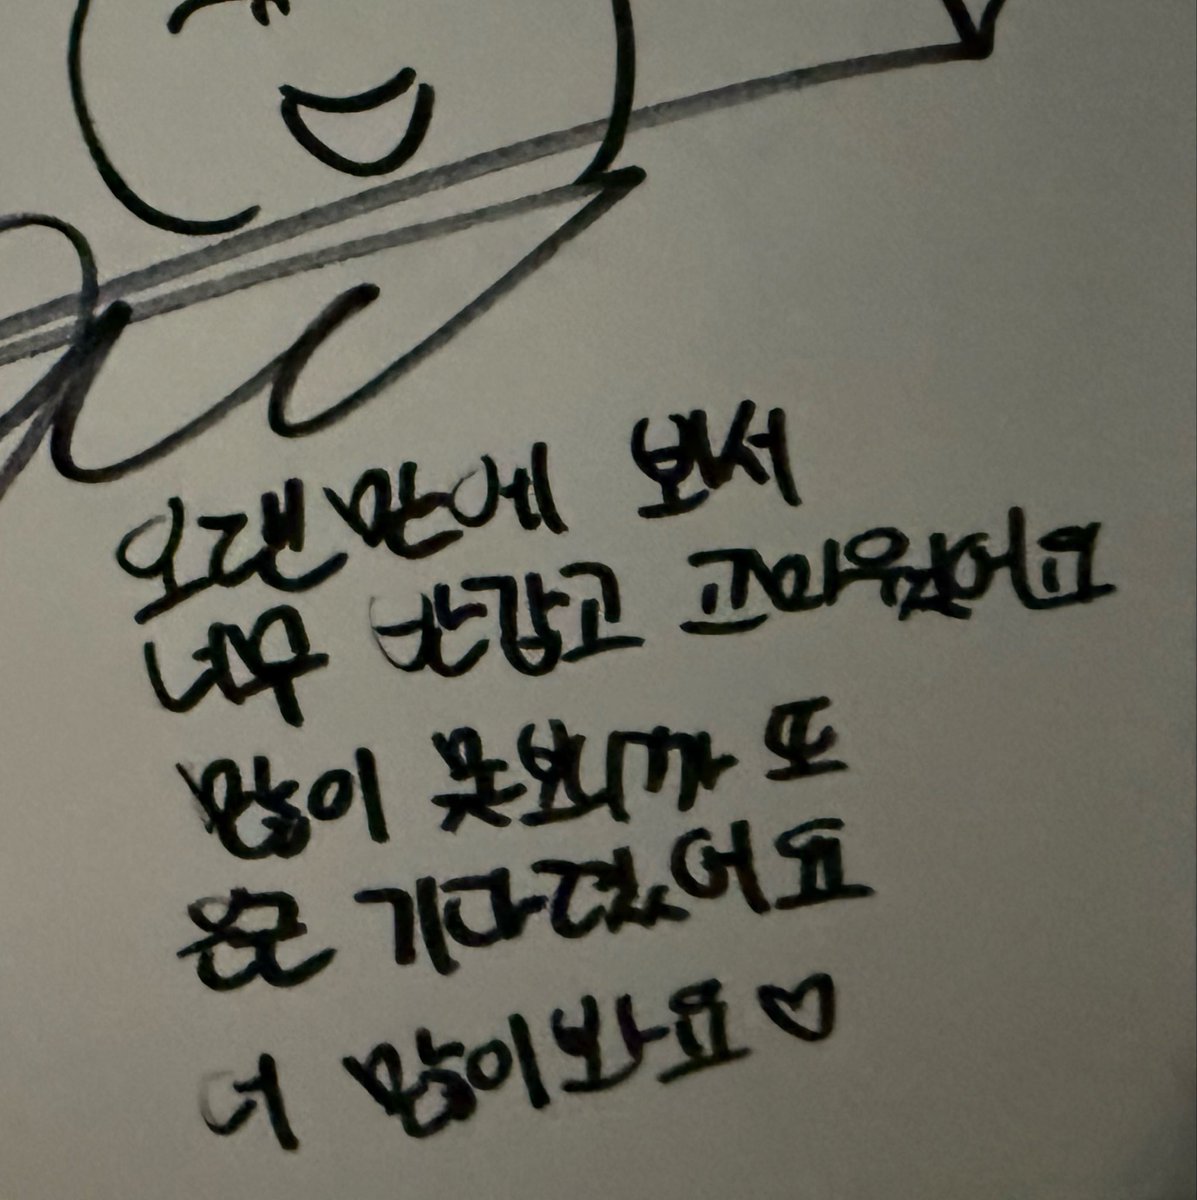 오랜만에 보서
너무 반갑고 고마웠어요
많이 못보니까 또
은근 기다렸어요
더 많이봐요♡